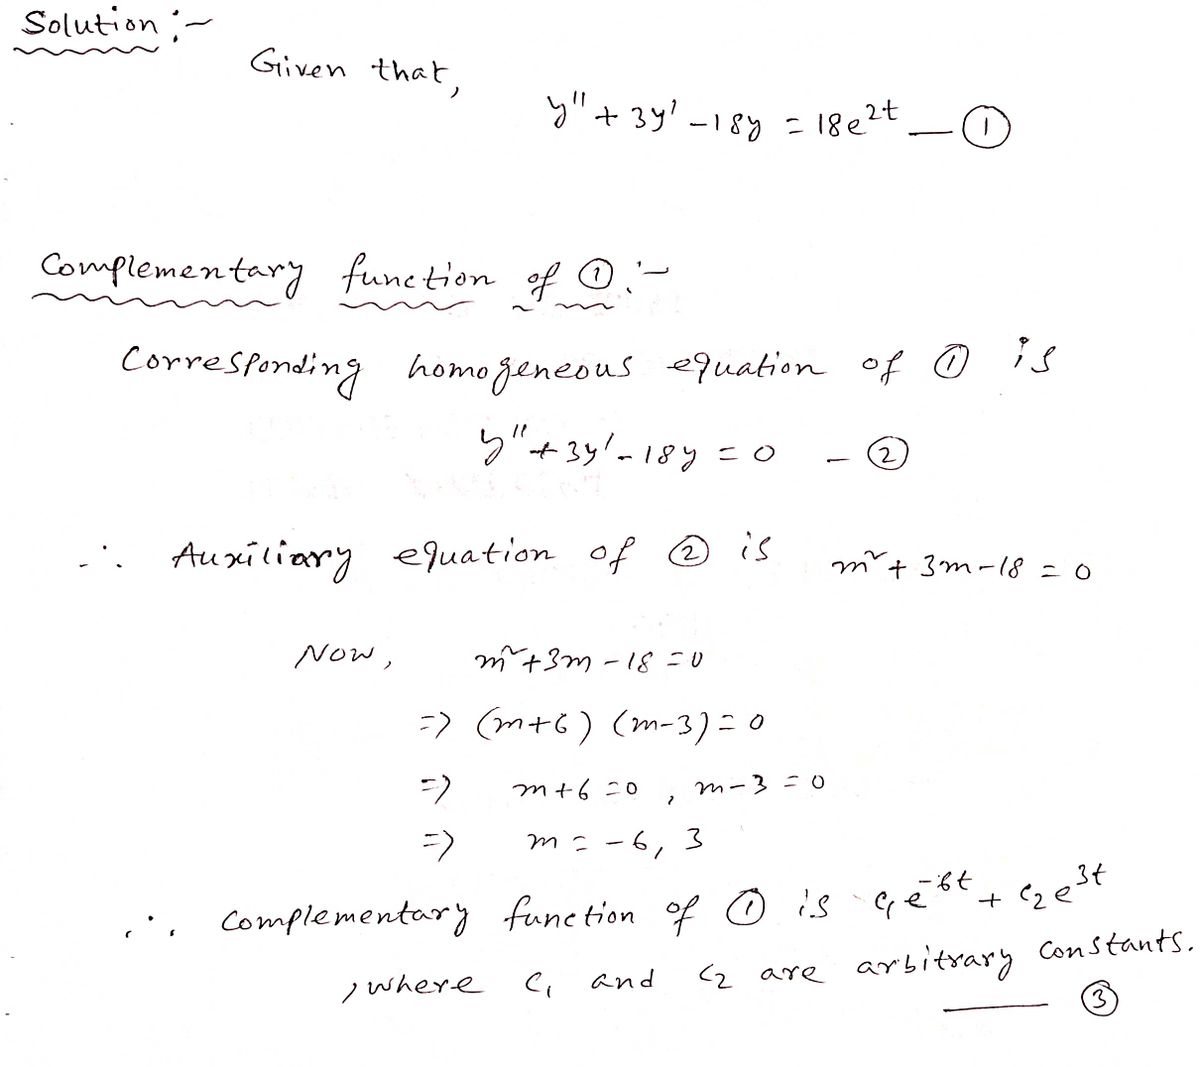 Solution :-
Given that,
y'' + 3y' - 18y = 18e^{2t} — ①
Complementary function of ① :-
Corresponding homogeneous equation of ① is
y'' + 3y' - 18y = 0 - ②
∴ Auxiliary equation of ② is m² + 3m - 18 = 0
Now, m² + 3m - 18 = 0
=> (m+6) (m-3) = 0
=> m+6 = 0 , m-3 = 0
=> m = -6, 3
∴ Complementary function of ① is c₁e^{-6t} + c₂e^{3t}
, where c₁ and c₂ are arbitrary constants.
— ③